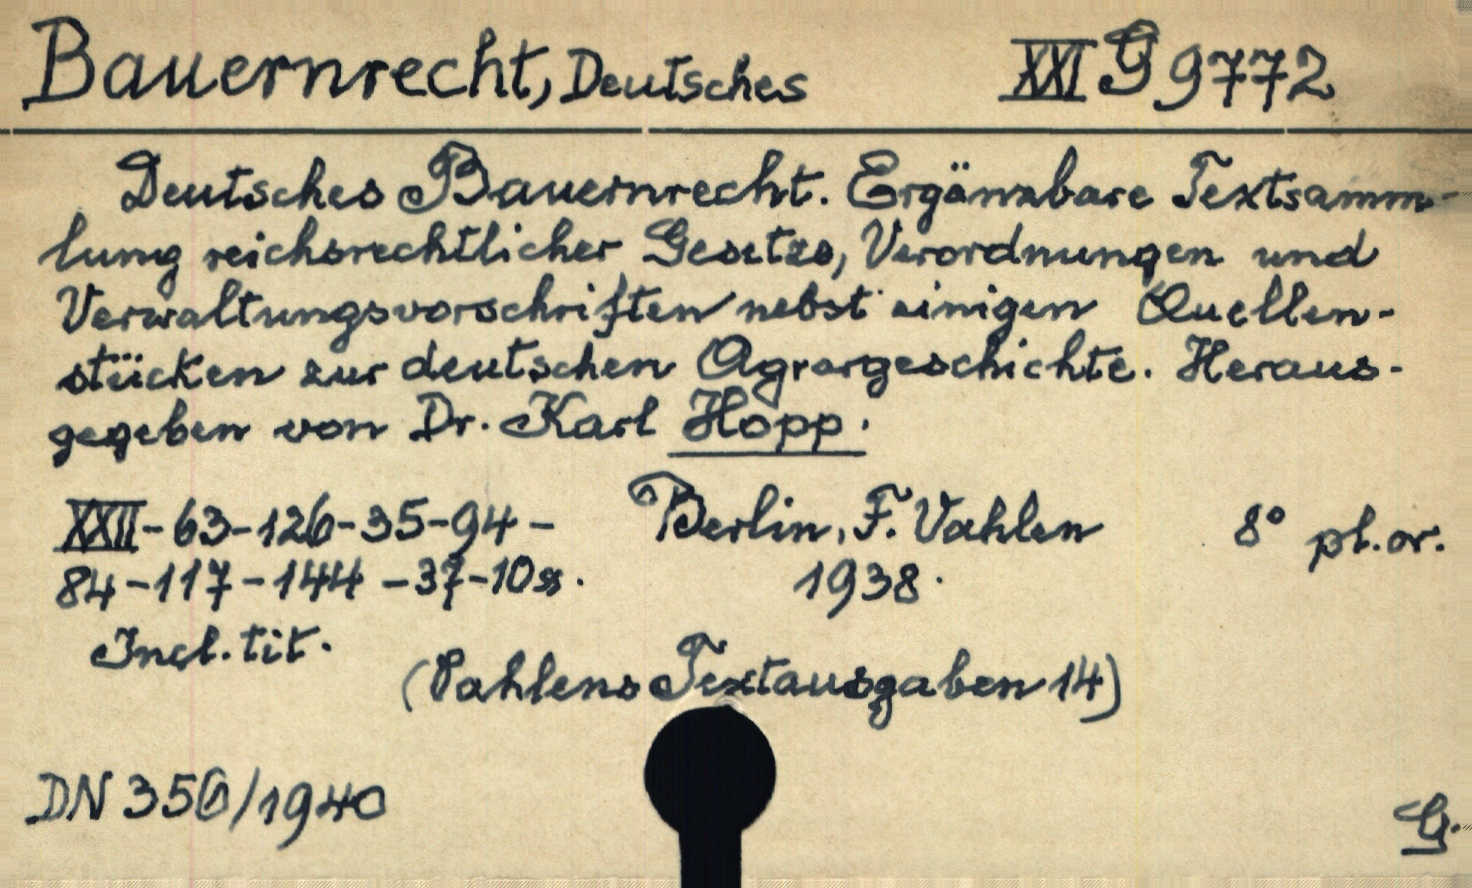 Bauernrecht, Deutsches XXI G 9772
Deutsches Bauernrecht. Ergänzbare Textsamm-
lung reichsrechtlicher Gesetze, Verordnungen und
Verwaltungsvorschriften nebst einigen Quellen-
stücken zur deutschen Agrargeschichte. Heraus-
gegeben von Dr. Karl Hopp.
XXII-63-126-35-94- Berlin, F. Vahlen 8° pl.or.
84-117-144-37-10 s. 1938.
Incl. tit.
(Vahlens Textausgaben 14)
DN 350/1940
G.